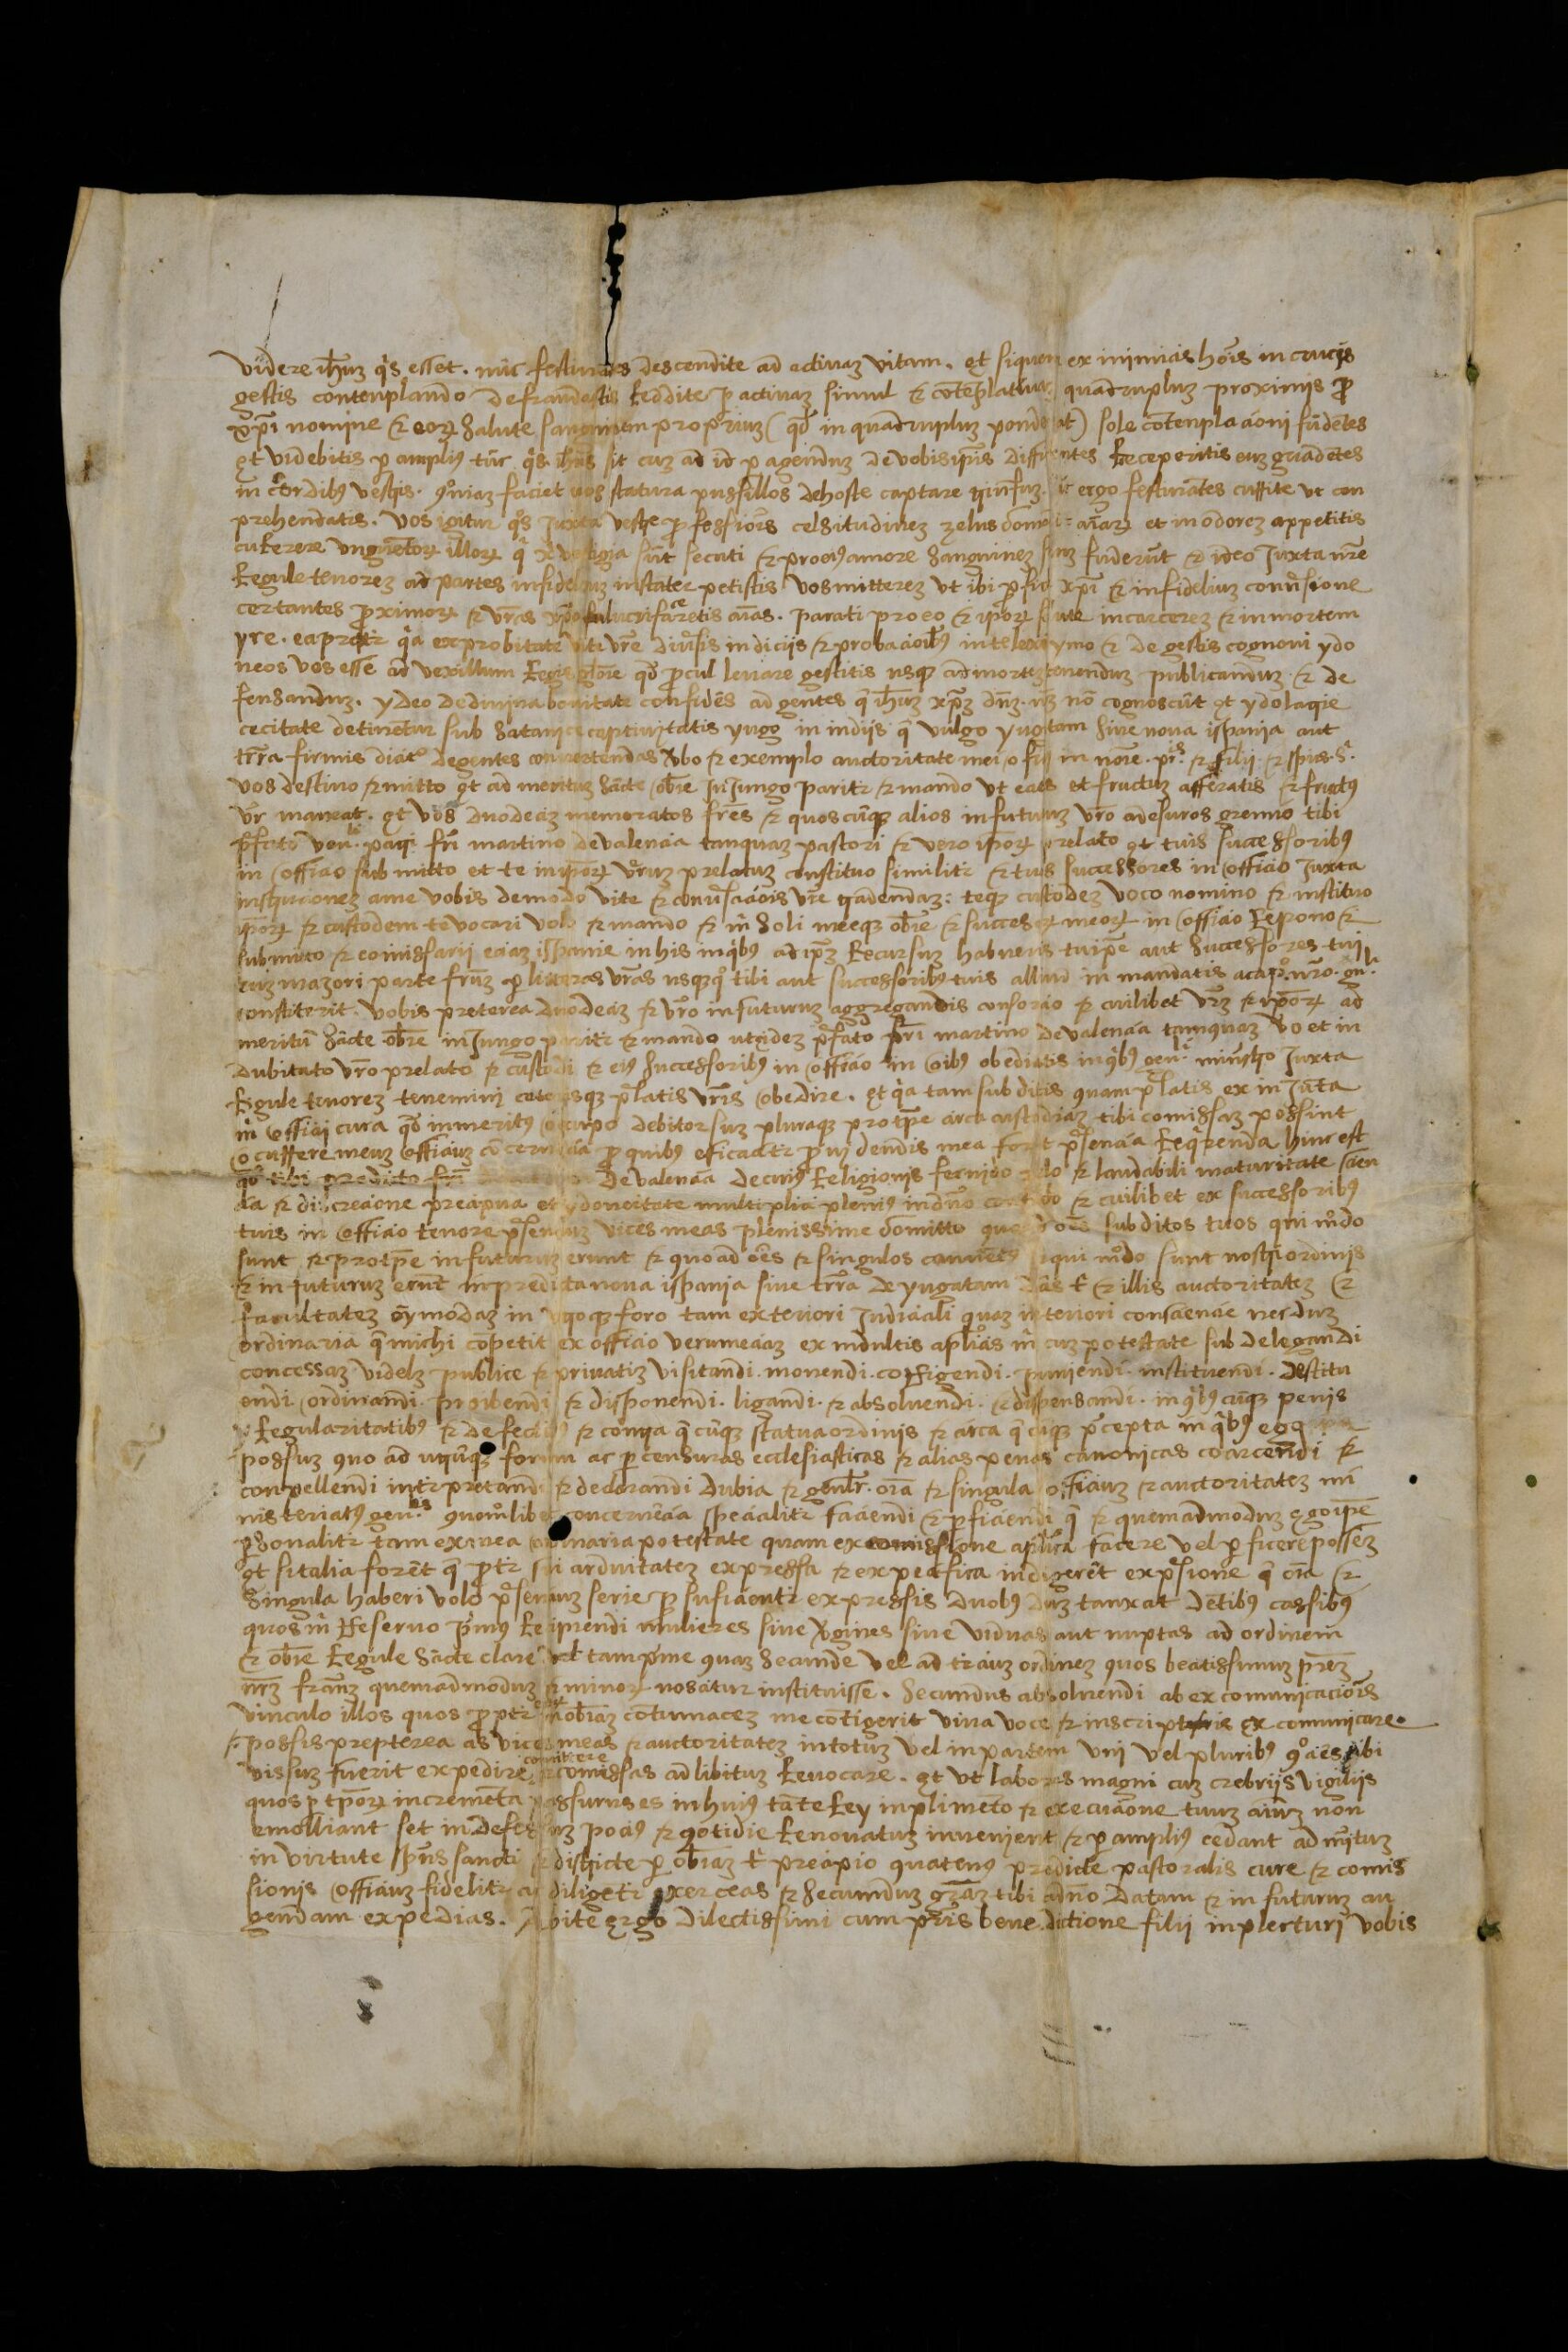 videre ih̃uz q̾s esset. nũc festinātes descendite ad activaz vitam. et siquem ex inimicis hoĩs in crucijs
gestis contenplando defraudastis Reddite p activaz simul & cōteplativaz quadrupluz proximis pro
xp̃i nomine & eorꝝ salute sanguinem proprium (qd̃ in quadrupluz ponderat) sole cōtenplacioni fudẽtes
et videbitis p ampliꝰ tũc q̾s ih̃us sit cuz ad id p agenduz de vobis ip̃is diffidentes Receperitis euz gaudẽtes
in cordibꝰ vestris. qm̃iaz faciet vos statura pusillos de hoste captare triunfuz. ergo festinātes curite ut con
prehendatis. vos igitur q̾s juxta vestre professiõis celsitudinez zelus domini aīarꝝ et in odorez appetitis
currere unguentorꝝ illorꝝ q̾ x̃i vestigia sũt secuti & pro eiꝰ amore sanguinez suuz fuderũt & ideo juxta nr̃e
Regule tenorez ad partes infideliuz instāter petistis vos mitterez ut ibi p fide xp̃i & infidelium conṽsione
certantes proximorꝝ & vr̃as xp̃o lucrifaretis aīas. parati pro eo & ip̃orꝝ salute in carcerez & in mortem
yre. ea propter q̾a ex probitate viti vr̃e diṽsis indicijs & probacioibꝰ intelexi ymo & de gestis cognovi ydo
neos vos esse ad vexillum Regis glorie qd̃ procul levare gestitis usqꝫ ad mortez tenenduz publicanduz & de
fensanduz. ydeo de divina bonitate confidẽs ad gentes q̃ ih̃uz xp̃z dñz. nr̃z nõ cognoscũt et ydolatrie
cecitate detinẽtur sub satanice captivitatis yugo in indijs q̃ vulgo yugatam sive nova ispania aut
tr̃ra firmis dicit̃ degentes convertendas ṽbo & exemplo auctoritate mei officij in noĩe. pr̃is & filij & sp̃us. s̃.
vos destino & mitto et ad meritum sãcte obẽie in jungo pariter & mando ut eatis et fructuz afferatis & fructꝰ
vr̃ maneat. et vos duodecim memoratos fr̃es & quoscũqꝫ alios in futuruz vr̃o adesuros gremio tibi
p̃fato ven.li patri fr̃i martino de valencia tanquaz pastori & vero ip̃orꝝ prelato et tuis successoribꝰ
in officio submitto et te in ip̃orꝝ veruz prelatum constituo similiter & tuis successores in officio juxta
instrucionez a me vobis de modo vite & conṽsacionis vr̃e tradendam: teqꝫ custodez voco nomino & instituo
ip̃orꝝ & custodem te vocari volo & mando & m̃ soli meeqꝫ obẽie & successorꝝ meorꝝ in officio Repono &
submitto & comissarij eciaz ispanie in his in q̾bꝰ ad ip̃z Recursuz habueris tu ip̃e aut successores tui
cuz maiori parte fr̃uz p literas vr̃as usqꝫ q̾ tibi aut successoribꝰ tuis aliud in mandatis a cap.º nr̃o. gñ.li
constiterit. vobis preterea duodecim & vr̃o in futuruz aggregandis consorcio & cuilibet vr̃z & ip̃orꝝ ad
meritũ sãcte obẽie in jungo pariter & mando ut eidez p̃fato fr̃i martino de valencia tamquaz ṽo et in
dubitato vr̃o prelato & custodi & eiꝰ successoribꝰ in officio in oĩbꝰ obediatis in q̾bꝰ gen.li ministro juxta
Regule tenorez tenemini ceterisqꝫ p̃latis vr̃is obedire. et q̾a tam subditis quam p̃latis ex injuncta
m̃ officij cura qd̃ inmeritꝰ occupo debitor suz pluraqꝫ pro tp̃e circa custodiaz tibi comissaz possint
occurrere meuz officiuz concernẽcia pro quibꝰ eficaciter providendis mea foret p̃sencia Req̾renda hinc est
qd̃ tibi predicto fr̃i martino de valencia de cuiꝰ Religionis fervido zelo & laudabili maturitate scien
cia & discrecione precipua et ydoneitate multiplici pleniꝰ in dño confido & cuilibet ex successoribꝰ
tuis in officio tenore p̃senciuz vices meas plenissime comitto quo ad oẽs subditos tuos qui modo
sunt & pro tp̃e in futuruz erunt & quo ad oẽs & singulos conventꝰ qui mõdo sunt nostri ordinis
& in futuruz erũt in predicta nova ispania sive tr̃ra de yugatam dãs t̾ & illis auctoritatez &
facultatez oỹmodaz in utroqꝫ foro tam exteriori judiciali quaz interiori consciencie nec duz
ordinariã q̃ michi cõpetit ex officio verumeciaz ex indultis aplicis m̃ cuz potestate subdelegandi
concessaz videlz publice & privatiz visitandi. monendi. corrigendi. puniendi. instituendi. destitu
endi. ordinandi. proibendi & disponendi. ligandi. & absolvendi. & dispensandi. in q̾bꝰcũqꝫ penis
Regularitatibꝰ & defectibꝰ & cõtra q̃cũqꝫ statuta ordinis & circa q̃cũqꝫ p̃cepta in q̾bꝰ ego
possuz quo ad utrũqꝫ forum ac p censuras ecclesiasticas & alias penas canonicas coarcendi &
conpellendi interpretandi & declarandi dubia & genlr. oĩa & singula officiuz & auctoritatez mi
nisteriatꝰ gen.lis quom̃libet concernẽcia specialiter faciendi & p ficiendi q̃ & quemadmoduz ego ip̃e
p̃sonaliter tam ex mea ordinaria potestate quam ex comissione aplica facere vel p ficere possez
et si talia forẽt q̃ pter sui arduitatez expressa & expecifica indigerẽt exp̃sione q̃ oĩa &
singula haberi volo p̃senciuz serie pro suficienter expressis duobꝰ duz taxat dẽtibꝰ cassibꝰ
quos m̃ Reservo p̃mus Recipiendi mulieres sive ṽgines sive viduas aut nuptas ad ordinem
& obẽie Regule sãcte clare vel tam p̃me quaz secunde vel ad terciuz ordinez quos beatissimum p̃rez
nr̃z franz quemadmoduz & minorꝝ noscitur instituisse. secundus absolvendi ab excomunicaciõis
vinculo illos quos propter inobẽiaz cõtumacez me cõtigerit viva voce & inscriptis excomunicare.
& possis prepterea as vices meas & auctoritatez in totuz vel in partem uni vel pluribꝰ q̾ciẽs tibi
vissuz fuerit expedire comittere & comissas ad libituz Revocare. et ut labores magni cuz crebrijs vigilijs
quos p tp̃orꝝ incremẽta passurus es in huiꝰ tãte Rey inplimẽto & execuciõne tuuz aĩuz non
emolliant set in defessuz pociꝰ & q̾tidie Renovatuz invenient & p ampliꝰ cedant ad mr̃ituz
in virtute sp̃us sancti & districte p obẽiaz t̾ precipio quatenꝰ predicte pastoralis cure & comis
sionis officiuz fideliter ac diligẽter exerceas & secunduz gr̃az tibi a dño datam & in futuruz au
gendam expedias. Abite ergo dilectissimi cum pr̃is benedictione filij inplecturi vobis